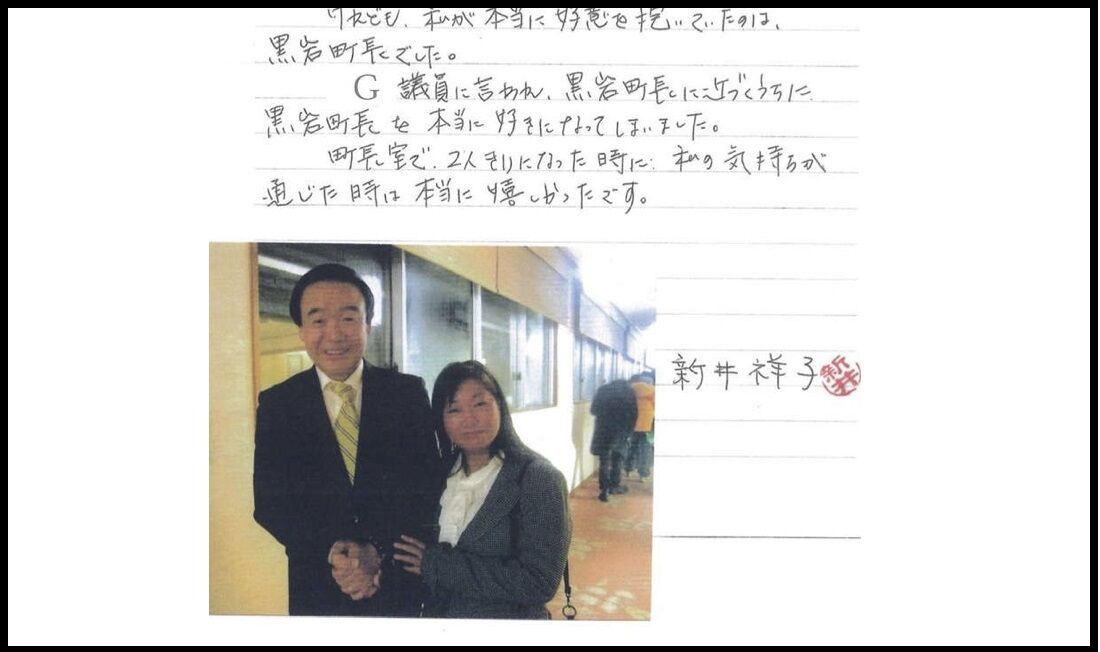 けれども、私が本当に好意を抱いていたのは、
黒岩町長でした。
G 議員に言われ、黒岩町長に近づくうちに
黒岩町長を本当に好きになってしまいました。
町長室で、2人きりになった時に、私の気持ちが
通じた時は本当に嬉しかったです。
新井祥子
新井